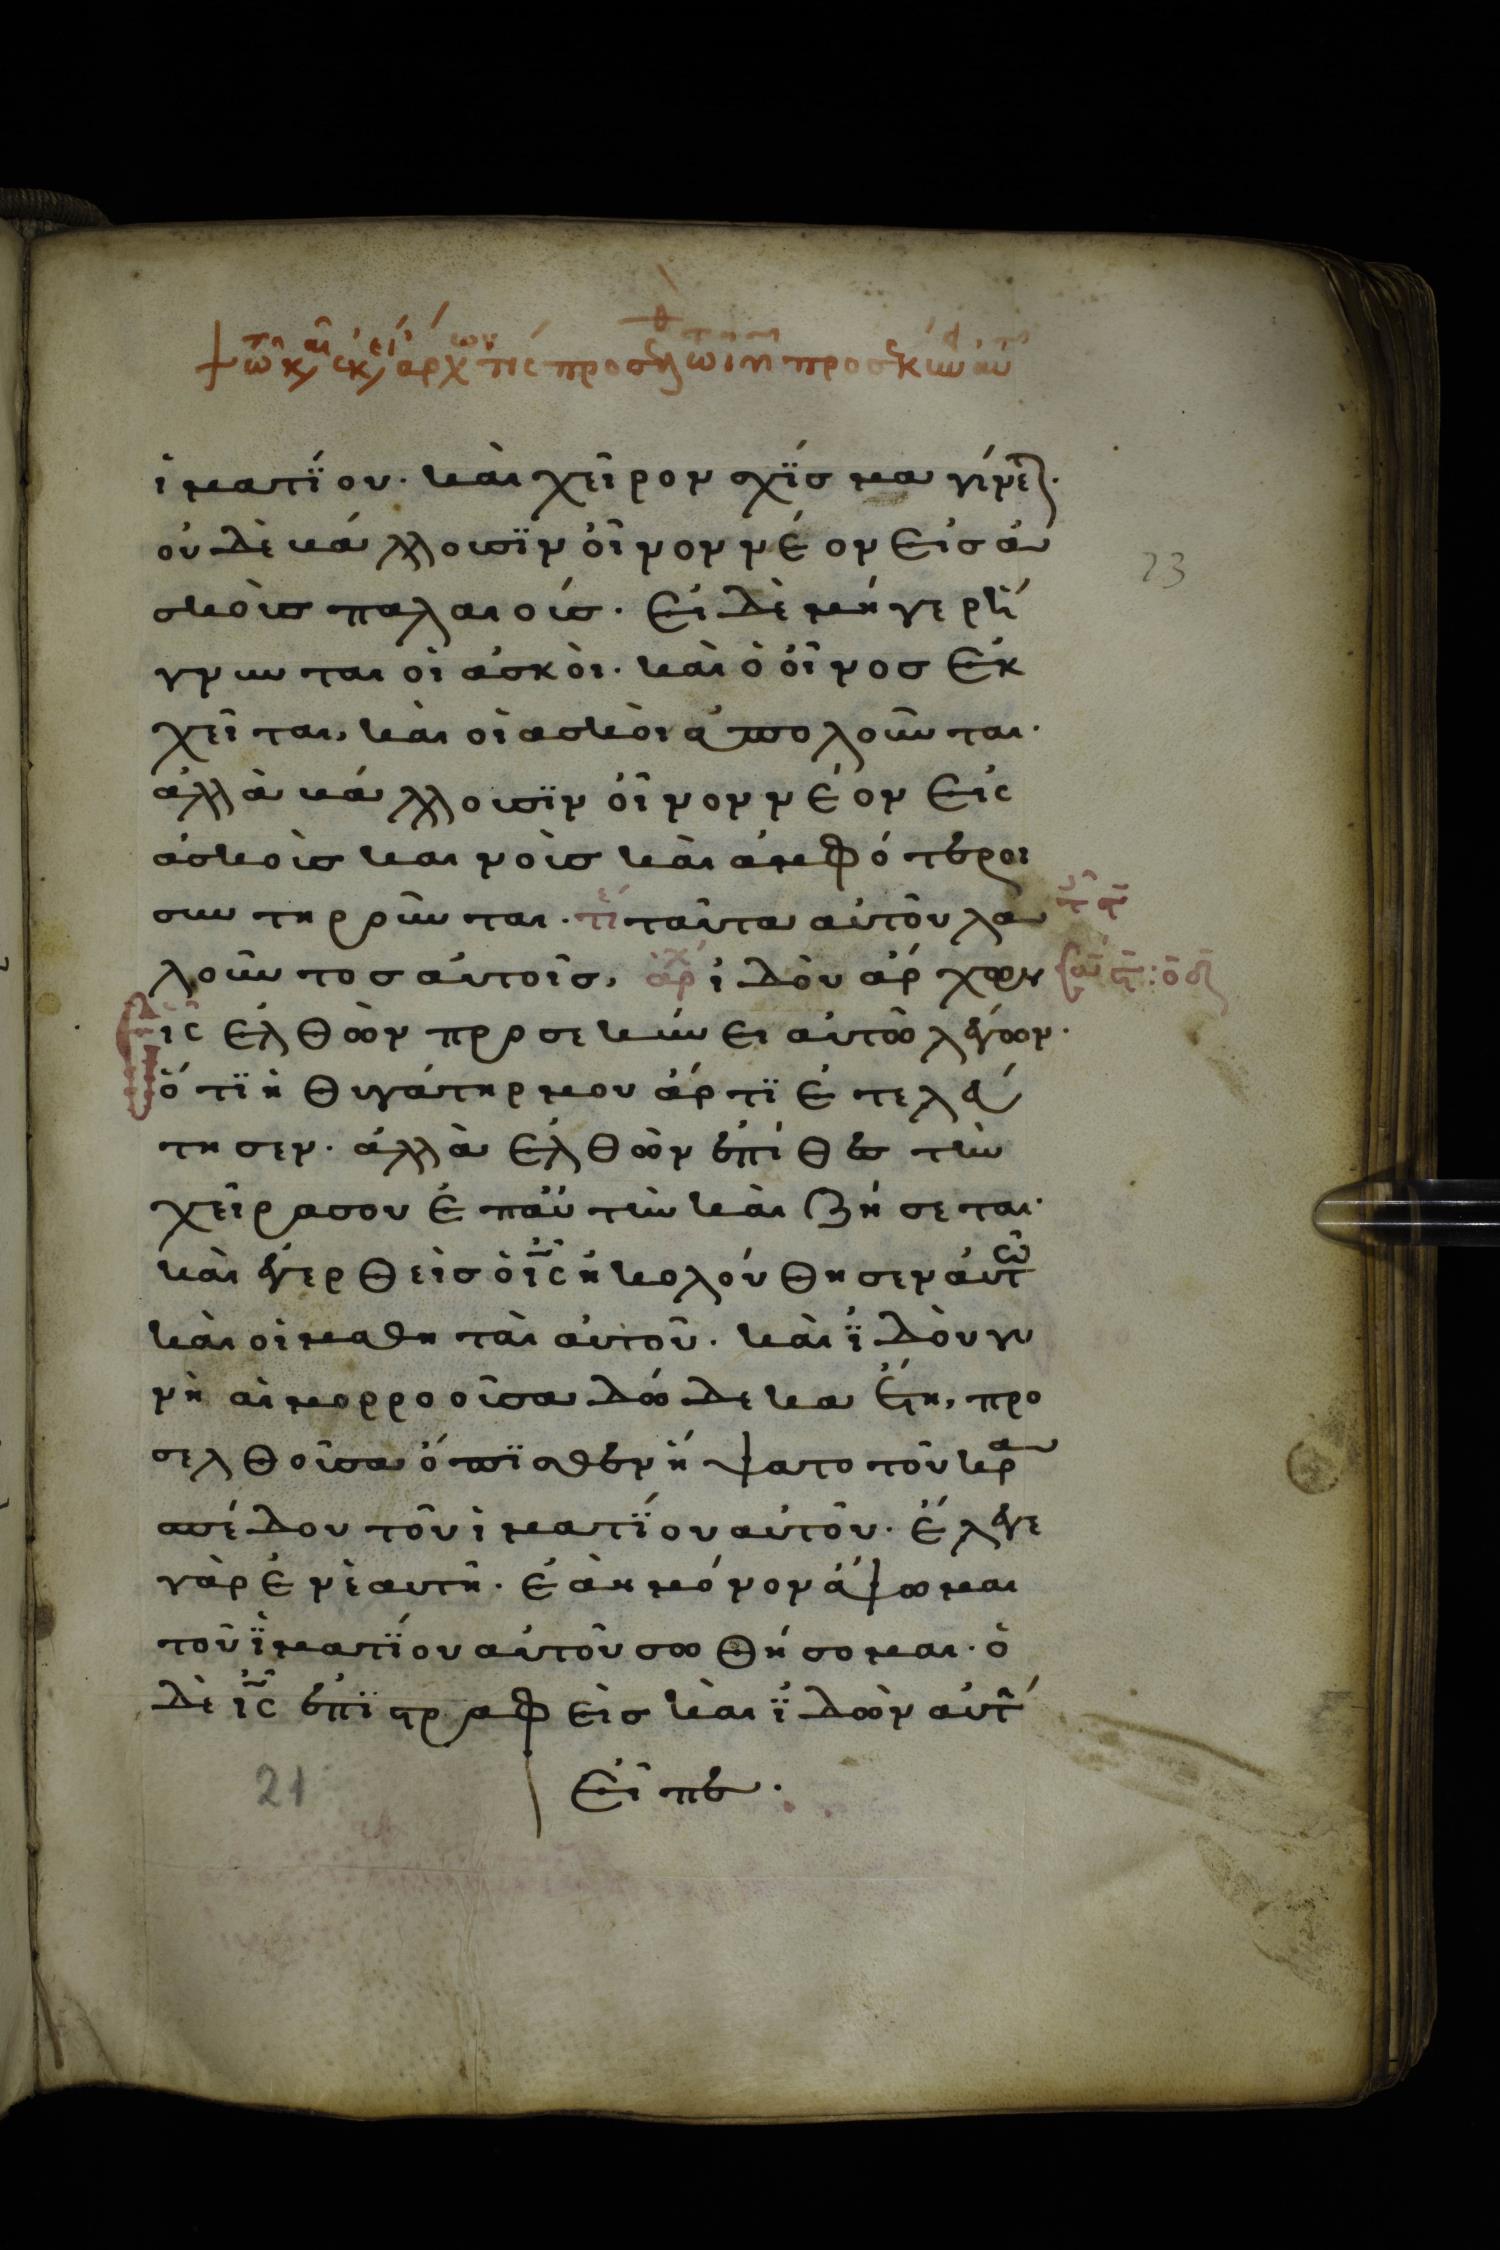 ἱματΐου. καὶ χεῖρον σχΐσμα γίνετ
οὐδὲ βάλλουσϊν οἶνον νέον εἰς ἀ
σκοὺς παλαιούς. εἰ δὲ μήγε ρή
γνυνται οἱ ἀσκοὶ. καὶ ὁ οἶνος ἐκ
χεῖται, καὶ οἱ ἀσκοὶ ἀπολοῦνται.
ἀλλὰ βάλλουσϊν οἶνον νέον εἰς
ἀσκοὺς καινοὺς καὶ ἀμφότεροι
συντηροῦνται. ταῦτα αὐτοῦ λα
λοῦντος αὐτοῖς, ἰδοὺ ἄρχων
εἷς ἐλθὼν προσεκύνει αὐτῶ λέγων.
ὅτϊ ἡ θυγάτηρ μου ἄρτϊ ἐτελεύ
τησεν. ἀλλὰ ἐλθὼν ἐπίθες τὴν
χεῖρα σου ἐπ αὐτὴν καὶ ζήσεται.
καὶ ἐγερθεὶς ὁ ις ἠκολούθησεν αὐτῶ
καὶ οἱ μαθηταὶ αὐτοῦ. καὶ ϊδοὺ γυ
νὴ αἱμορροοῦσα δώδεκα ἔτη, προ
σελθοῦσα ὄπϊσθεν ἥψατο τοῦ κρα
σπέδου τοῦ ἱματΐου αὐτοῦ. ἔλεγε
γὰρ ἐν ἑαυτῆ. ἐὰν μόνον ἅψωμαι
τοῦ ϊματΐου αὐτοῦ σωθήσομαι. ὁ
δὲ ις ἐπϊστραφεὶς καὶ ϊδὼν αὐτ
εἶπε.
23
21